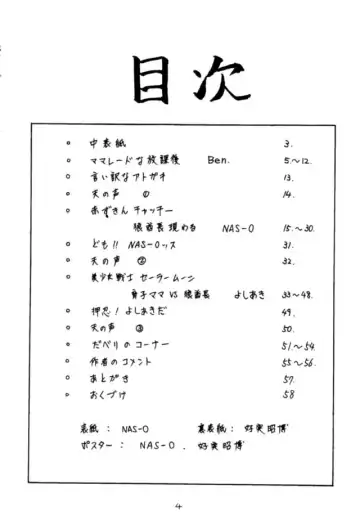 目次
○ 中表紙 3.
○ ママレードな放課後 Ben. 5.〜12.
○ 言い訳なアトガキ 13.
○ 天の声 ① 14.
○ 赤ずきんチャッチー
猿酋長現わる NAS-O 15.〜30.
○ ども!! NAS-Oッス 31.
○ 天の声 ② 32.
○ 美少女戦士 セーラームーン
育子ママ VS 猿酋長 よしあき 33〜48.
○ 押忍! よしあきだ 49.
○ 天の声 ③ 50.
○ だべりのコーナー 51.〜54.
○ 作者のコメント 55〜56.
○ あとがき 57.
○ おくづけ 58
表紙: NAS-O 裏表紙: 好実昭博
ポスター: NAS-O . 好実昭博
4